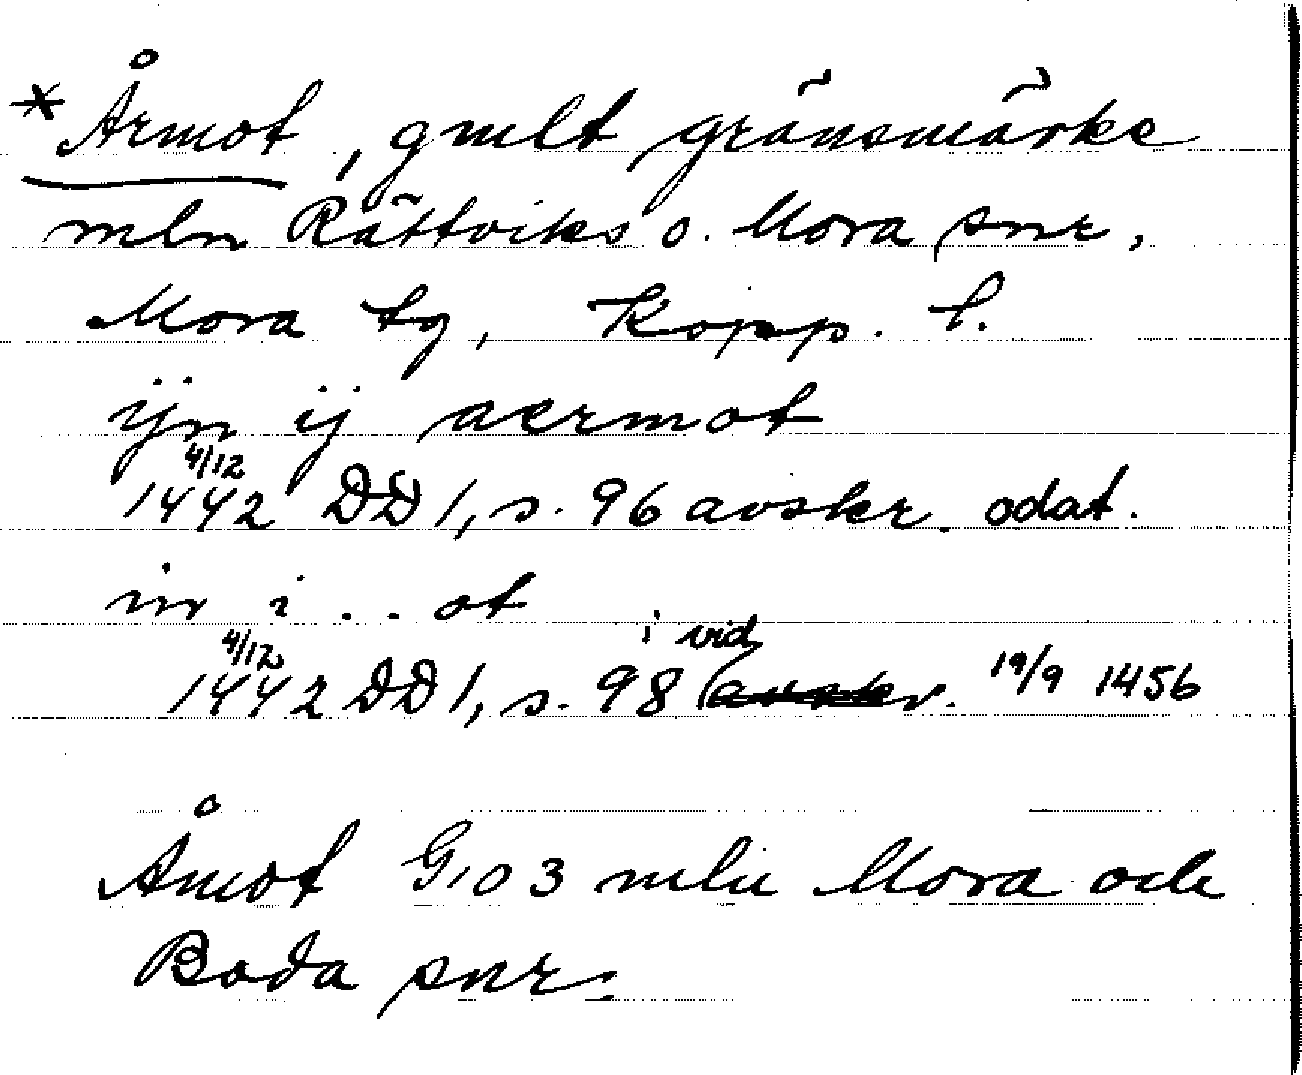 * Årmot, gmlt gränsmärke
mln Rättviks o. Mora snr,
Mora tg, Kopp. l.
ijn ij aermot
4/12
1442 DD 1, s. 96 avskr. odat.
in i . . ot
4/12 i vid
1442 DD 1, s. 98 (avskr. 19/9 1456
Åmot G:03 mln Mora och
Boda snr.